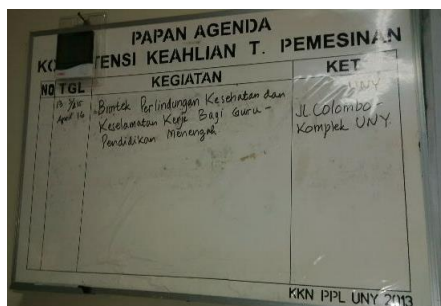 PAPAN AGENDA
TENSI KEAHLIAN T. PEMESINAN
NO TGL KEGIATAN KET
Bimtek Perlindungan Kesehatan dan
Keselamatan Kerja Bagi Guru -
Pendidikan Menengah
UNY
JL Colombo -
Komplek UNY
April 16
KKN PPL UNY 2013